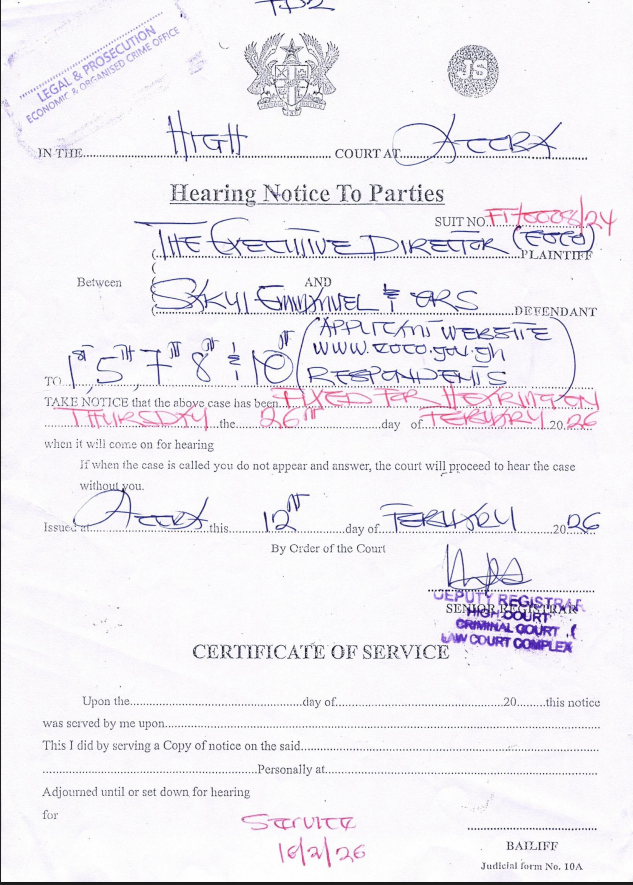 LEGAL & PROSECUTION
ECONOMIC & ORGANISED CRIME OFFICE
JS
IN THE HIGH COURT AT ACCRA
Hearing Notice To Parties
SUIT NO. FT/0008/24
THE EXECUTIVE DIRECTOR (EOCO) PLAINTIFF
Between AND
EMMANUEL & ORS DEFENDANT
(APPLICANT WEBSITE
www.eoco.gov.gh
TO 1st, 5TH, 7TH 8TH & 10TH RESPONDENTS
TAKE NOTICE that the above case has been FIXED FOR HEARING ON
THURSDAY the 26TH day of FEBUARY 2026
when it will come on for hearing
If when the case is called you do not appear and answer, the court will proceed to hear the case
without you.
Issued at ACCRA this 12TH day of FEBUARY 2026
By Order of the Court
SENIOR REGISTRAR
DEPUTY REGISTRAR
HIGH COURT
CRIMINAL COURT
LAW COURT COMPLEX
CERTIFICATE OF SERVICE
Upon the day of 20 this notice
was served by me upon
This I did by serving a Copy of notice on the said
Personally at
Adjourned until or set down for hearing
for
SERVICE
16/2/26
BAILIFF
Judicial form No. 10A